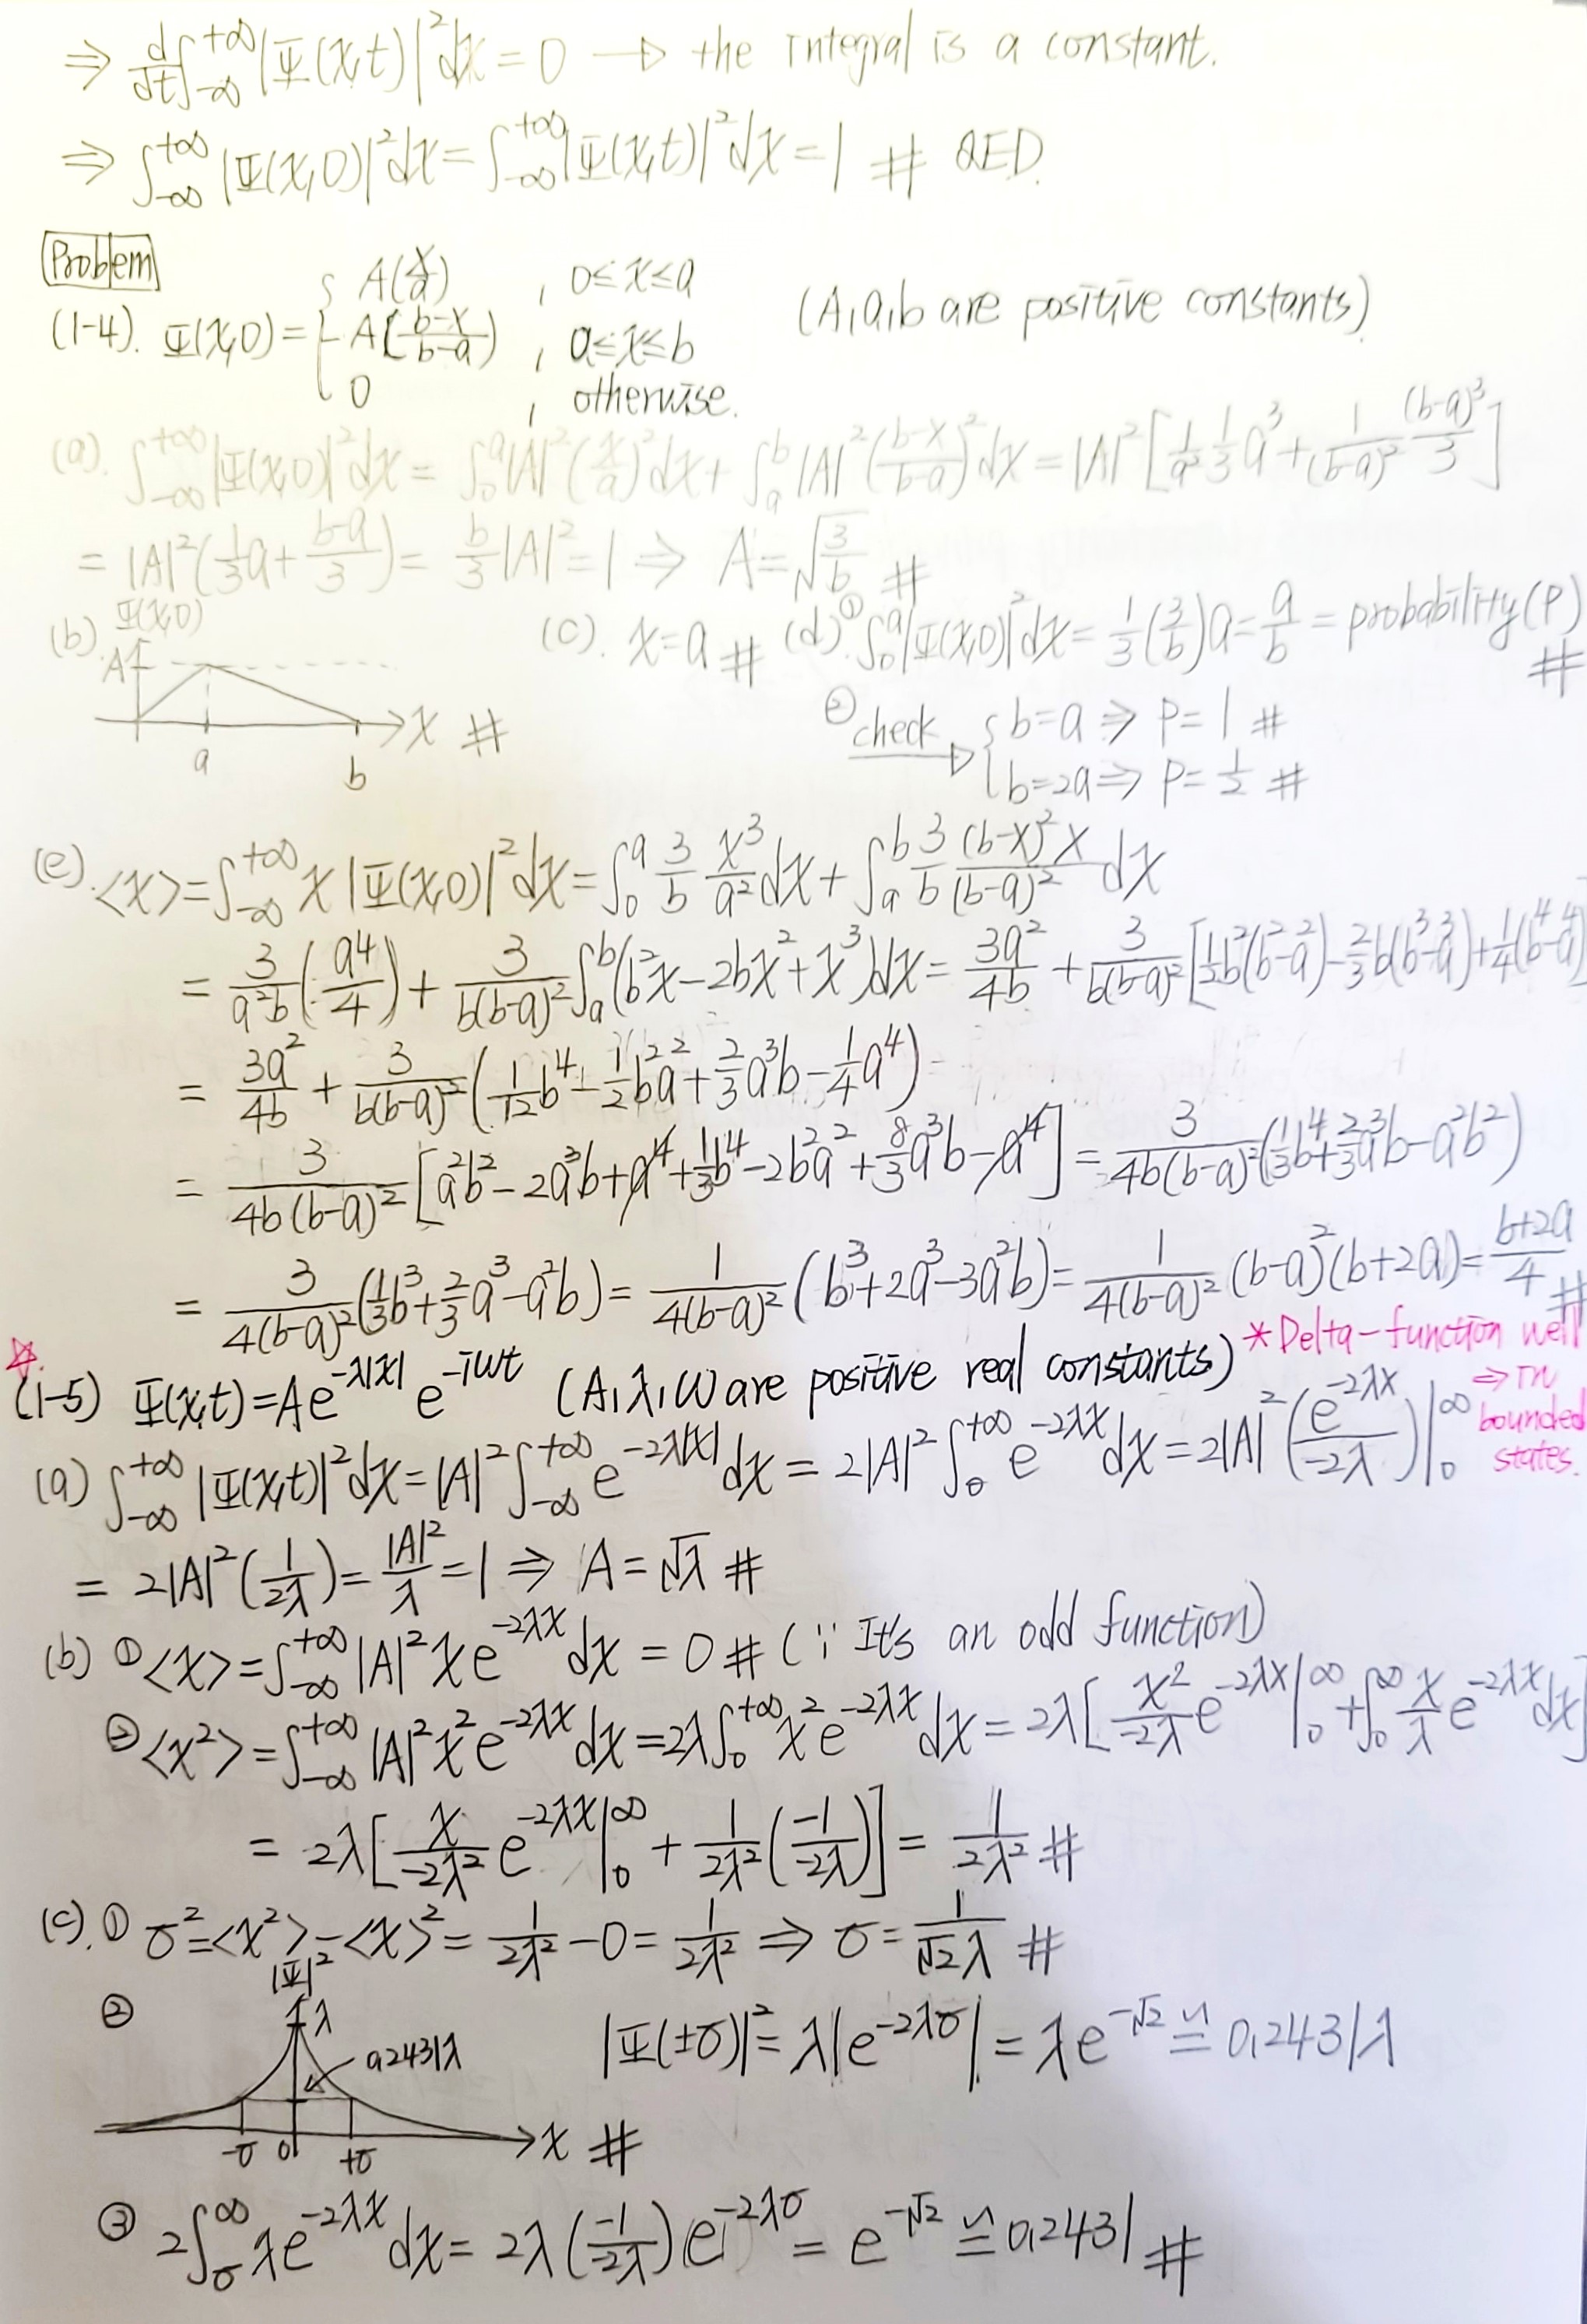 ⇒ d/dt ∫_{-∞}^{+∞} |Ψ(x,t)|² dx = 0 → the integral is a constant.
⇒ ∫_{-∞}^{+∞} |Ψ(x,0)|² dx = ∫_{-∞}^{+∞} |Ψ(x,t)|² dx = 1 # QED.
Problem
(1-4). Ψ(x,0) = { A(x/a) , 0≤x≤a
A(b-x/b-a) , a≤x≤b (A,a,b are positive constants)
0 , otherwise.
(a). ∫_{-∞}^{+∞} |Ψ(x,0)|² dx = ∫_0^a |A|² (x/a)² dx + ∫_a^b |A|² (b-x/b-a)² dx = |A|² [1/a² 1/3 a³ + 1/(b-a)² (b-a)³/3]
= |A|² (1/3 a + b-a/3) = b/3 |A|² = 1 ⇒ A = √(3/b) #
(b). Ψ(x,0) A a b x #
(c). x = a #
(d) ① ∫_0^a |Ψ(x,0)|² dx = 1/3 (3/b) a = a/b = probability (P) #
② check → { b=a ⇒ P=1 #
b=2a ⇒ P=1/2 #
(e). <x> = ∫_{-∞}^{+∞} x |Ψ(x,0)|² dx = ∫_0^a 3/b x³/a² dx + ∫_a^b 3/b (b-x)²x/(b-a)² dx
= 3/a²b (a⁴/4) + 3/b(b-a)² ∫_a^b (b²x - 2bx² + x³) dx = 3a²/4b + 3/b(b-a)² [1/2 b²(b²-a²) - 2/3 b(b³-a³) + 1/4 (b⁴-a⁴)]
= 3a²/4b + 3/b(b-a)² (1/12 b⁴ - 1/2 b²a² + 2/3 a³b - 1/4 a⁴)
= 3/4b(b-a)² [a²b² - 2a³b + a⁴ + 1/3 b⁴ - 2b²a² + 8/3 a³b - a⁴] = 3/4b(b-a)² (1/3 b⁴ + 2/3 a³b - a²b²)
= 3/4(b-a)² (1/3 b³ + 2/3 a³ - a²b) = 1/4(b-a)² (b³ + 2a³ - 3a²b) = 1/4(b-a)² (b-a)² (b+2a) = b+2a/4 #
☆ (1-5) Ψ(x,t) = Ae^{-λ|x|} e^{-iωt} (A,λ,ω are positive real constants)
* Delta-function well
⇒ in
bounded
states.
(a) ∫_{-∞}^{+∞} |Ψ(x,t)|² dx = |A|² ∫_{-∞}^{+∞} e^{-2λ|x|} dx = 2|A|² ∫_0^{+∞} e^{-2λx} dx = 2|A|² (e^{-2λx}/-2λ)|_0^∞
= 2|A|² (1/2λ) = |A|²/λ = 1 ⇒ A = √λ #
(b) ① <x> = ∫_{-∞}^{+∞} |A|² x e^{-2λx} dx = 0 # (∵ It's an odd function)
② <x²> = ∫_{-∞}^{+∞} |A|² x² e^{-2λx} dx = 2λ ∫_0^{+∞} x² e^{-2λx} dx = 2λ [x²/-2λ e^{-2λx}|_0^∞ + ∫_0^∞ x/λ e^{-2λx} dx]
= 2λ [x/-2λ² e^{-2λx}|_0^∞ + 1/2λ² (-1/-2λ)] = 1/2λ² #
(c). ① σ² = <x²> - <x>² = 1/2λ² - 0 = 1/2λ² ⇒ σ = 1/√2λ #
② |Ψ|² λ 0.2431λ -σ 0 +σ x #
|Ψ(±σ)|² = λ|e^{-2λσ}| = λe^{-√2} ≌ 0.2431λ
③ 2∫_σ^∞ λe^{-2λx} dx = 2λ (-1/-2λ) e^{-2λσ} = e^{-√2} ≌ 0.2431 #